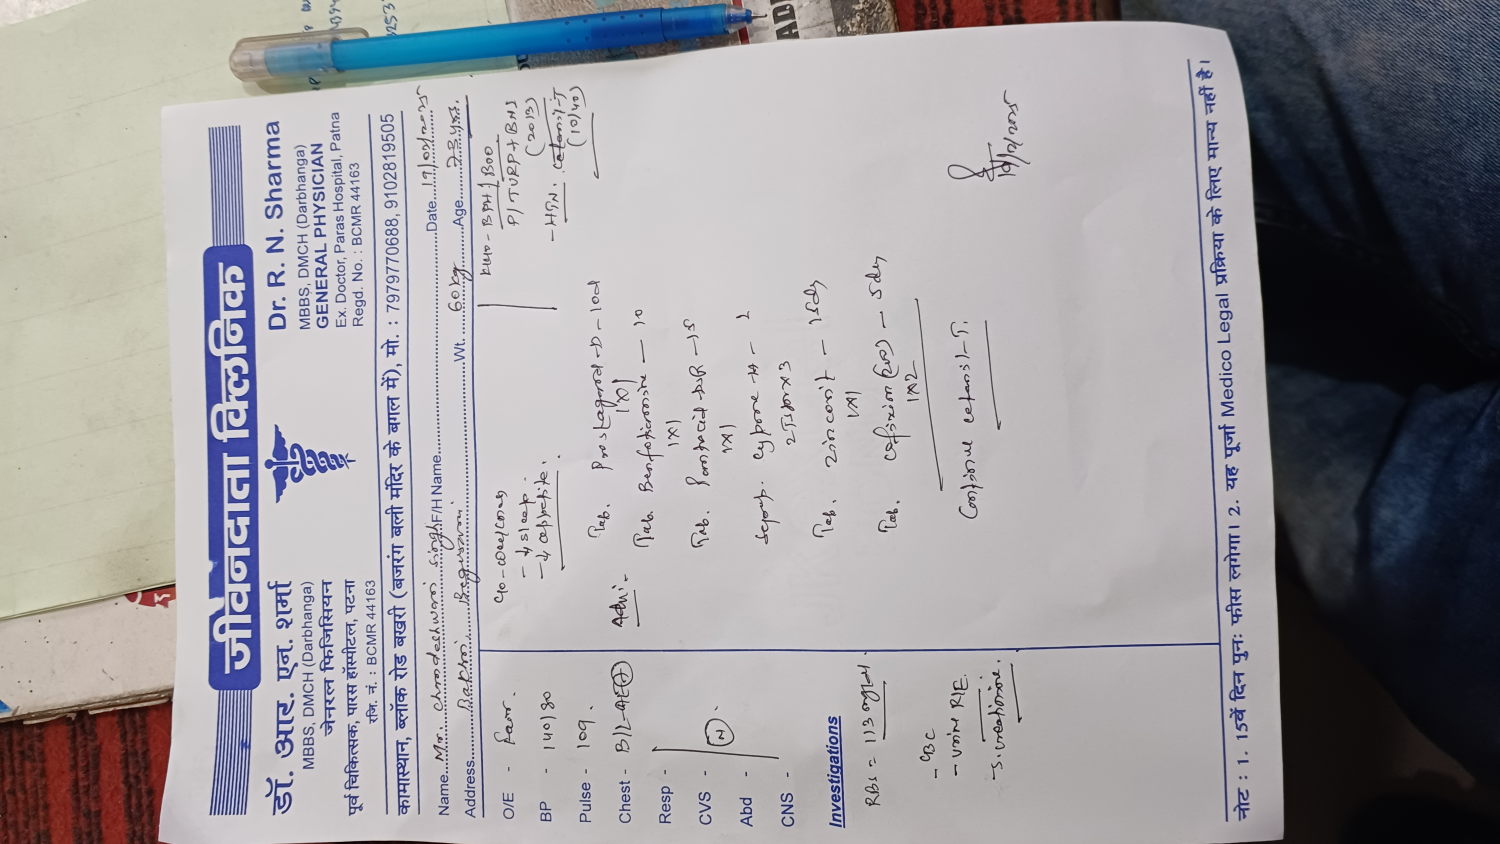 जीवनदाता क्लिनिक
डॉ. आर. एन. शर्मा
MBBS, DMCH (Darbhanga)
जेनरल फिजिसियन
पूर्व चिकित्सक, पारस हॉस्पीटल, पटना
रजि. नं. : BCMR 44163
Dr. R. N. Sharma
MBBS, DMCH (Darbhanga)
GENERAL PHYSICIAN
Ex. Doctor, Paras Hospital, Patna
Regd. No. : BCMR 44163
कामास्थान, ब्लॉक रोड बखरी (बजरंग बली मंदिर के बगल में), मो. : 7979770688, 9102819505
Name Mr. Chandeshwari Singh F/H Name Date 19/02/2025
Address Bakhri Begusarai Wt. 60kg Age
O/E - Fair.
BP - 140/80
Pulse - 109.
Chest - B/L-AE(+)
Resp -
CVS - (N).
Abd -
CNS -
Investigations
RBS = 113 mg/dl
- CBC
- Urine R/E
- S. creatinine.
K/C/O - BPH/BOO
P/TURP + BNI
(2013)
- HTN. Cetansl-T
(10/40)
- ↓ sleep.
- ↓ appetite.
Adv:-
Tab. Prostagard-D - 10d
1x1
Tab. Benfotiamine - 10
1x1
Tab. Pantacid-DSR - 15
1x1
Syrup. Cypone-H - 1
2TSFx3
Tab. Zinconit - 15d
1x1
Tab. Cefixim (200) - 5d
1x2
Continue Cetansl-T.
19/2/2025
नोट : 1. 15वें दिन पुनः फीस लगेगा। 2. यह पूर्जा Medico Legal प्रक्रिया के लिए मान्य नहीं है।